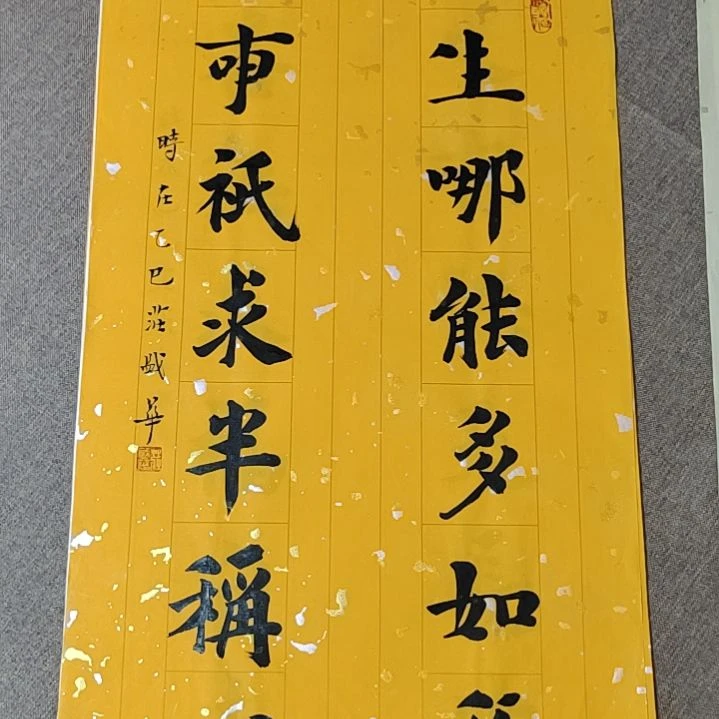 生哪能多如
事祇求半稱
時在乙巳莊華